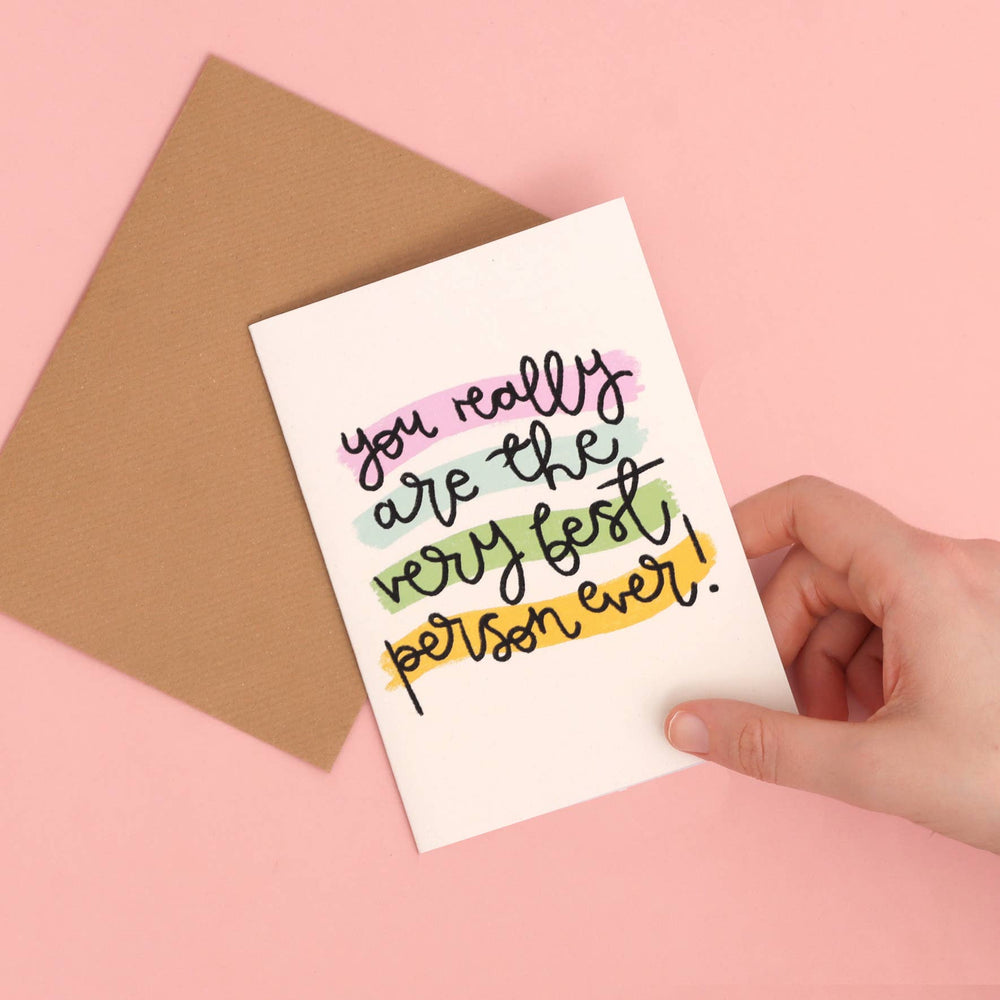 you really
are the
very best
person ever!